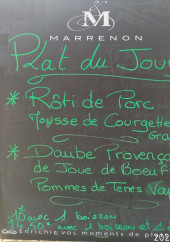 &
M
MARRENON
Plat du Jou
* Rôti de Porc
Mousse de Courgette
Gra
* Daube Provença
de Joue de Boeuf
Pommes de Terres Va
10 avec 1 boisson
50 avec 1 boisson et 1
enrichie vos moments de pl
202